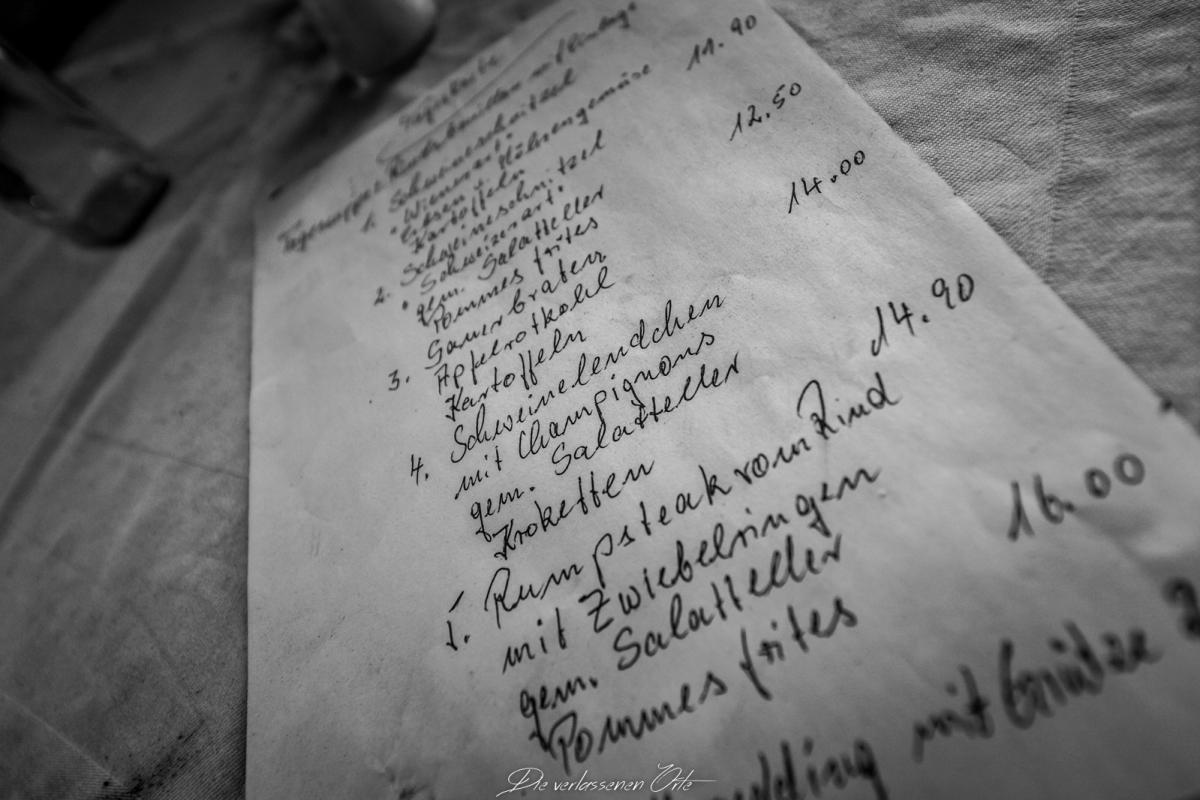 Tageskarte
Tagessuppe: Rinderbouillon mit Einlage
1. Schweineschnitzel 11.90
"Wiener Art"
Erbsen + Möhrengemüse
Kartoffeln
2. Schweineschnitzel 12.50
"Schweizer art"
gem. Salatteller
Pommes frites
3. Sauerbraten 14.00
Apfelrotkohl
Kartoffeln
4. Schweinelendchen 14.90
mit Champignons
gem. Salatteller
Kroketten
5. Rumpsteak vom Rind 16.00
mit Zwiebelringen
gem. Salatteller
Pommes frites
mit Grütze
Die verlassenen Orte